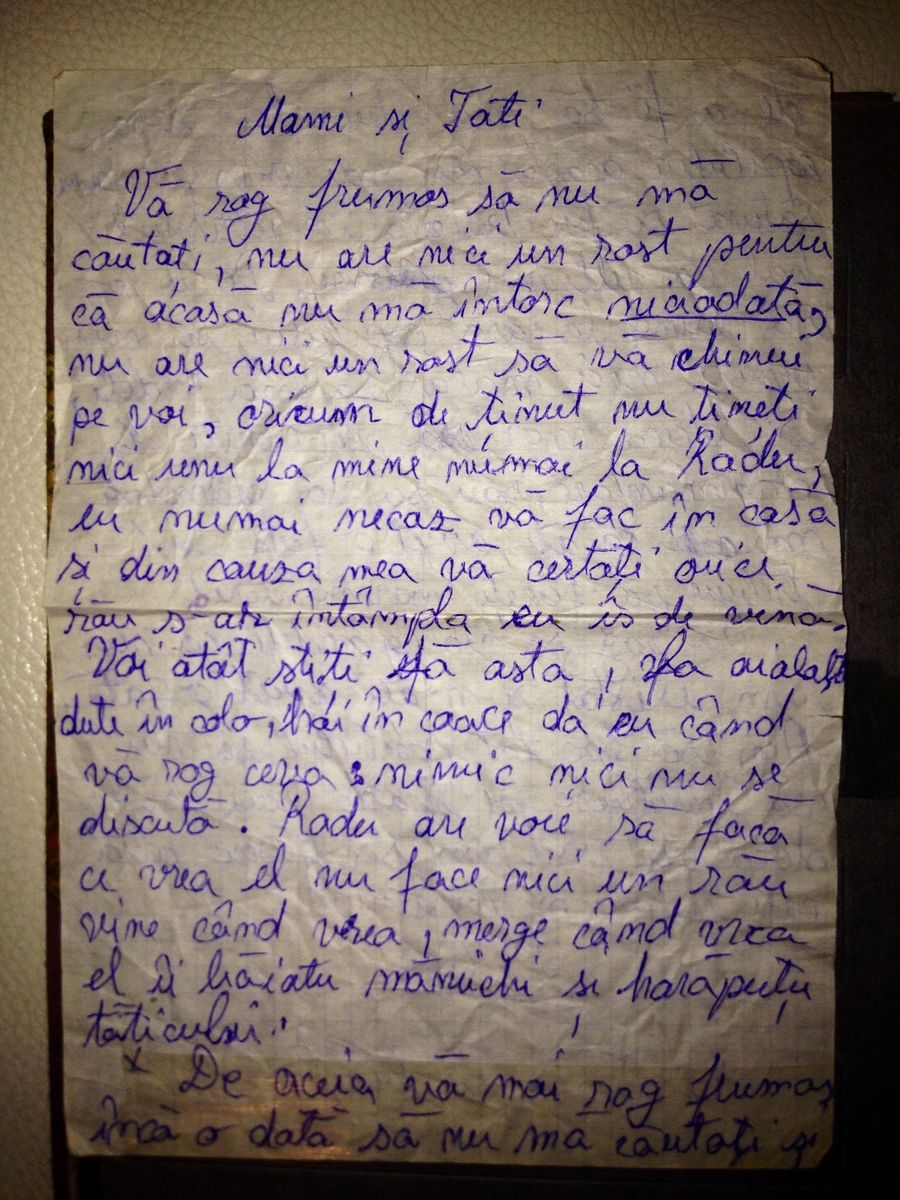 Mami și Tati
Vă rog frumos să nu mă
căutați, nu are nici un rost pentru
că acasă nu mă întorc niciodată,
nu are nici un rost să vă chinui
pe voi, oricum de ținut nu țineți
nici unu la mine numai la Radu,
eu numai necaz vă fac în casă
și din cauza mea vă certați orici
rău s-ar întâmpla eu îs de vină.
Voi atât știți fă asta, fa aialaltă
dute în colo, hai în coace da eu când
vă rog ceva nimic nici nu se
discută. Radu are voie să facă
ce vrea el nu face nici un rău
vine când vrea, merge când vrea
el îi băiatu mămichi și harăpuțu
tăticului.
x De aceia vă mai rog frumos
încă o dată să nu mă căutați și